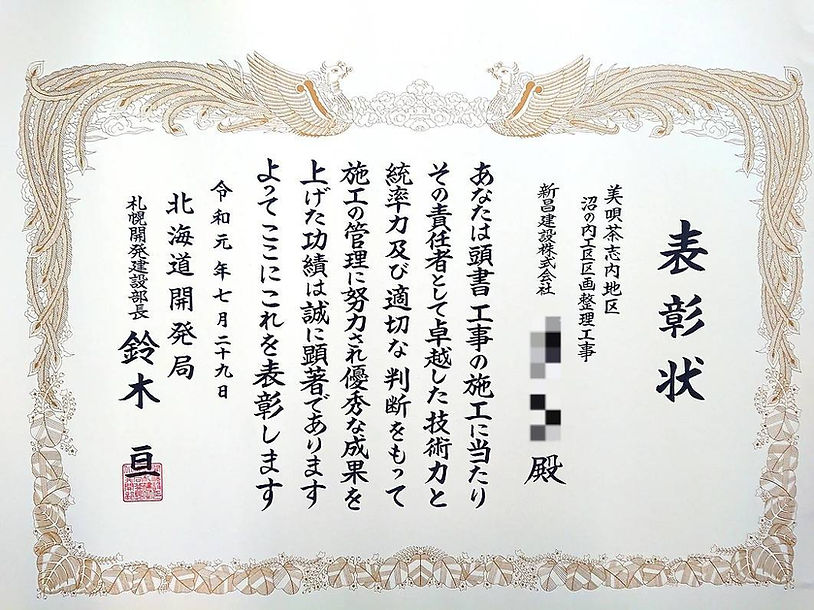 表彰状
美唄茶志内地区
沼の内工区区画整理工事
新昌建設株式会社
殿
あなたは頭書工事の施工に当たり
その責任者として卓越した技術力と
統率力及び適切な判断をもって
施工の管理に努力され優秀な成果を
上げた功績は誠に顕著であります
よってここにこれを表彰します
令和元年七月二十九日
北海道開発局
札幌開発建設部長 鈴木 亘